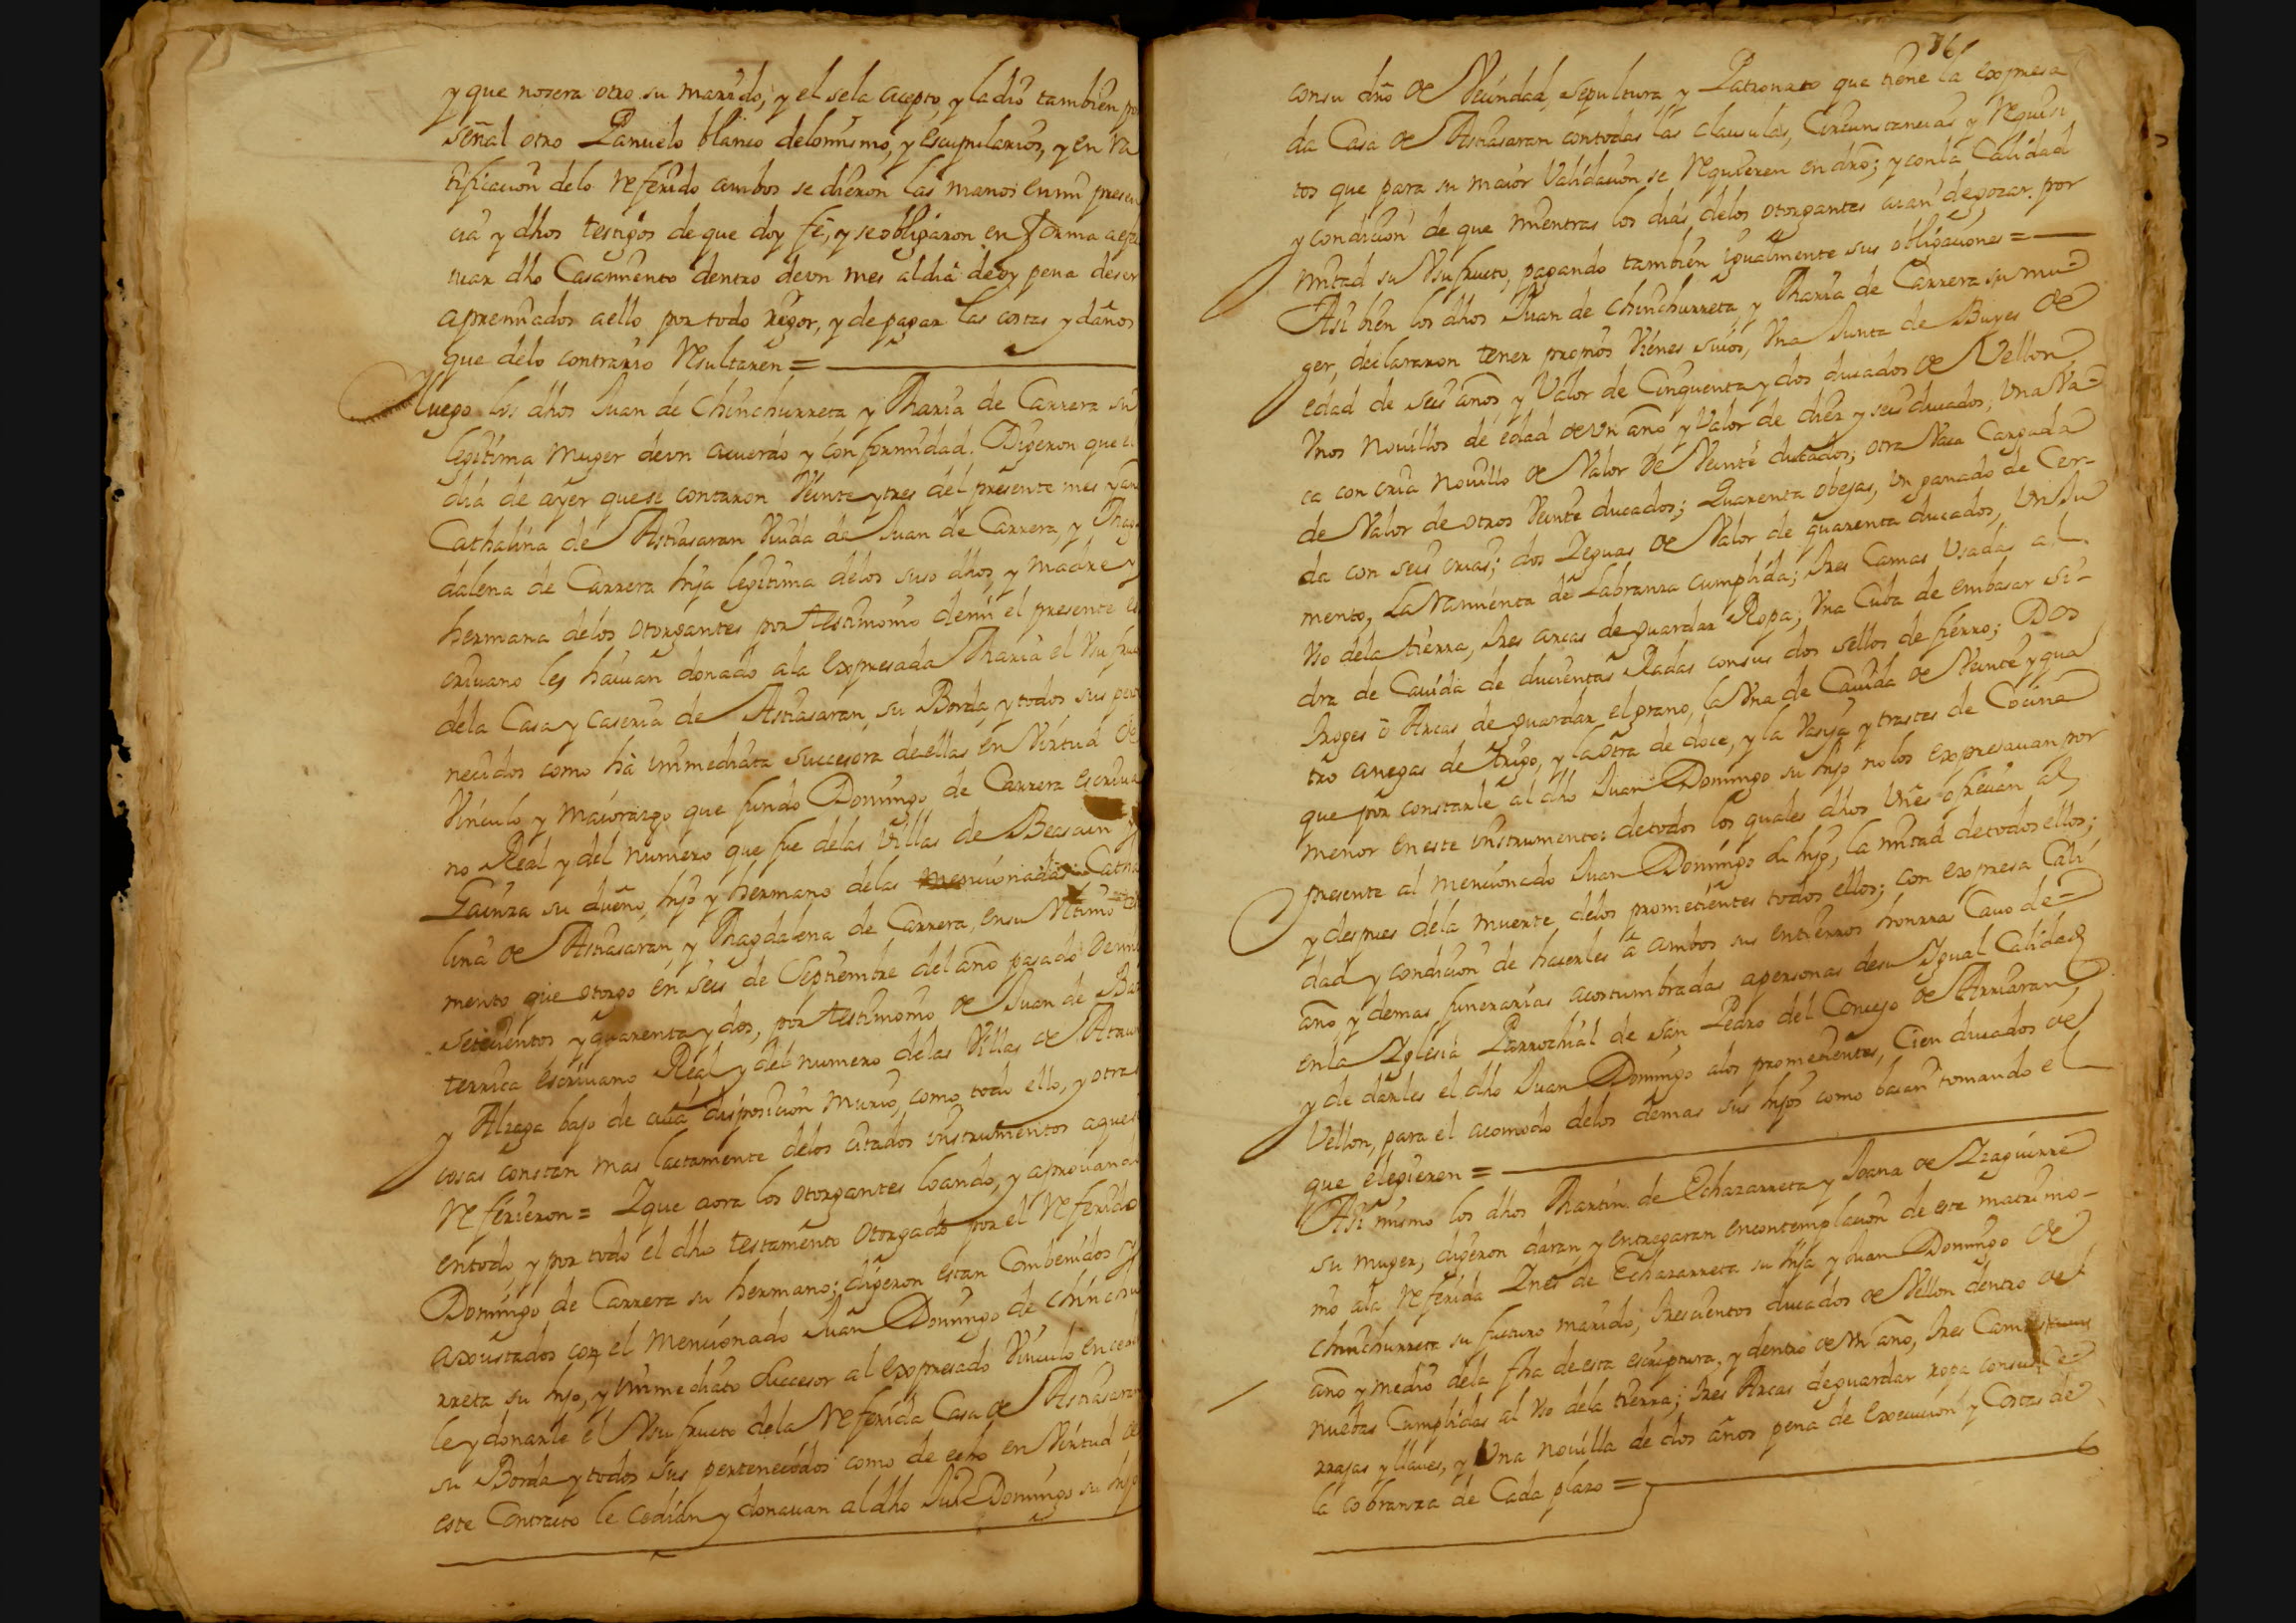 y que nosera otro su marido, y el sela acepto, y ladio tambien por
señal otro Panuelo blanco delomismo, y escapularios, y en ra
tificacion delo referido ambos se dieron las manos enmi presen
cia y dhos testigos de que doy fe, y seobligaron en forma aefec
tuar dho Casamiento dentro deun mes aldia deoy pena deser
apremiados aello por todo rigor, y depagar las costas y daños
que delo contrario resultaren =
Iluego los dhos Juan de Chinchurreta y Maria de Carrera su
legitima Muger deun acuerdo y conformidad. Digeron que el
dia de ayer quese contaron Veinte y tres del presente mes y año
Cathalina de Astasaran Viuda de Juan de Carrera, y Mag
dalena de Carrera hija legitima delos suso dhos, y Madre y
hermana delos otorgantes por testimonio demi el presente es
crivano les havian donado ala expresada Maria el Usufruc
dela Casa y Caseria de Astasaran, su Borda, y todos sus perte
necidos como hà immediata successora deellas en Virtud de
Vinculo y Maiorazgo que fundo Domingo de Carrera escriva
no Real y del numero que fue delas Villas de Beasain y
Gainza su dueño, hijo y hermano delas mencionadas Catha
lina de Astasaran, y Magdalena de Carrera, ensu Ultimo tes
mento que otorgo en seis de Septiembre del año pasado demil
setecientos y quarenta y dos, por testimonio de Juan de
terrica escrivano Real y del numero delas Villas de Ataun
y Alzega bajo de cuia disposicion murio, como todo ello, y otras
cosas constan mas lactamente delos citados instrumentos aque se
refirieron = I que aora los otorgantes loando, y aprovando
entodo y por todo el dho testamento otorgado por el referido
Domingo de Carrera su hermano; digeron estan Combenidos y
axoustados con el mencionado Juan Domingo de Chinchu
rreta su hijo, y immediato Successor al expresado Vinculo enceder
le y donarle el Usufructo dela referida Casa de Astasaran
su Borda y todos sus pertenecidos como de echo en Virtud de
este Contrato le cedian y donavan aldho Juan Domingo su hijo
161
consu dro de Vecindad, sepultura y Patronato que tiene la expresa
da Casa de Astasaran contodas las clausulas, Circunstancias y requisi
tos que para su maior Validacion se requieren endro; y conla Calidad
y condicion de que mientras los dias delos otorgantes aian degozar por
mitad su Usufructo, pagando tambien igualmente sus obligaciones =
Asi bien los dhos Juan de Chinchurreta, y Maria de Carrera su mu
ger, declararon tener propios Vienes suios, Una Junta de Bueyes de
edad de seis años y Valor de Cinquenta y dos ducados de Vellon,
Unos Novillos de edad de un año y Valor de diez y seis ducados, Una Va
ca con cria novillo de Valor de Veinte ducados; otra Vaca Cargada
de Valor de otros Veinte ducados; Quarenta obejas, Un ganado de Cer
da con seis crias; dos Yeguas de Valor de quarenta ducados, Un Ju
mento, La ramienta de Labranza cumplida; tres Camas Usadas al
Uso dela tierra, tres arcas deguardar Ropa; Una Cuba de embasar si
dra de Cavida de ducientas Radas consus dos sellos de fierro; Dos
troges ò Arcas de guardar el grano, la Una de Cavida de Veinte y qua
tro anegas de trigo, y laotra de doce, y la Vasija y trastes de Cocina
que por constarle al dho Juan Domingo su hijo no los expresavan por
menor eneste instrumento: detodos los quales dhos Vnes ofrecian al
presente al mencionado Juan Domingo su hijo, la mitad detodos ellos;
y despues dela muerte delos prometientes todos ellos; con expresa Cali
dad y condicion de hacerles à ambos sus entierros honrras Cavo de
año y demas funerarias acostumbradas apersonas desu Igual Calidad
enla Iglesia Parrochial de San Pedro del Concejo de Arriaran,
y de darles el dho Juan Domingo alos prometientes, Cien ducados de
Vellon, para el acomodo delos demas sus hijos como basan tomando el
que eligieren =
Asi mismo los dhos Martin de Echazarreta y Joana de Izaguirre
su Muger, digeron daran, y entregaran encontemplacion de este matrimo
nio ala referida Ines de Echazarreta su hija y Juan Domingo de
Chinchurreta su futuro marido; trescientos ducados de Vellon dentro de
año y medio dela fha deesta escriptura, y dentro de un año, tres Camas
nuebas Cumplidas al uso dela tierra; tres Arcas deguardar ropa consus Ce
rrajas y llaves, y Una novilla de dos años pena de execucion y Costas de
la cobranza de Cada plazo =